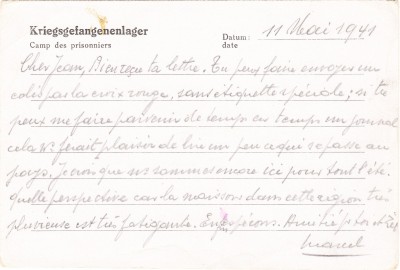 Kriegsgefangenenlager
Camp des prisonniers
Datum:
date
11 Mai 1941
Cher Jean, Bien reçu ta lettre. Tu peux faire envoyer un
colis par la croix rouge, sans étiquette spéciale; si tu
peux me faire parvenir de temps en temps un journal
cela me ferait plaisir de lire un peu ce qui se passe au
pays. Je crois que ns sommes encore ici pour tout l'été.
quelle perspective car la maison dans cette région très
pluvieuse est très fatigante. Enfin espérons. Amitié p. toi et
Marcel